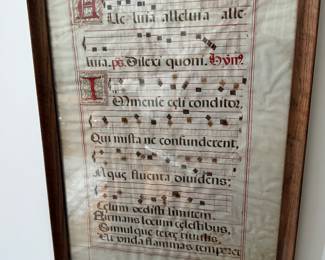 Alle luia alleluia alle
luia. ps. Dilexi quoni. Hỹn⁹.
Immense celi conditor,
Qui mista ne confunderent,
Aque fluenta diuidens:
Celum dedisti limitem.
Firmans locum celestibus,
Simulque terre riuulis,
Vt vnda flammas temperet